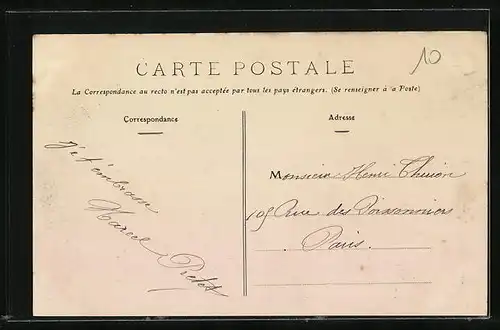 10
CARTE POSTALE
La Correspondance au recto n'est pas acceptée par tous les pays étrangers. (Se renseigner à a Poste)
Correspondance
Adresse
Je t'embrasse
Marcel
Monsieur Henri
109 Rue des Poissonniers
Paris.